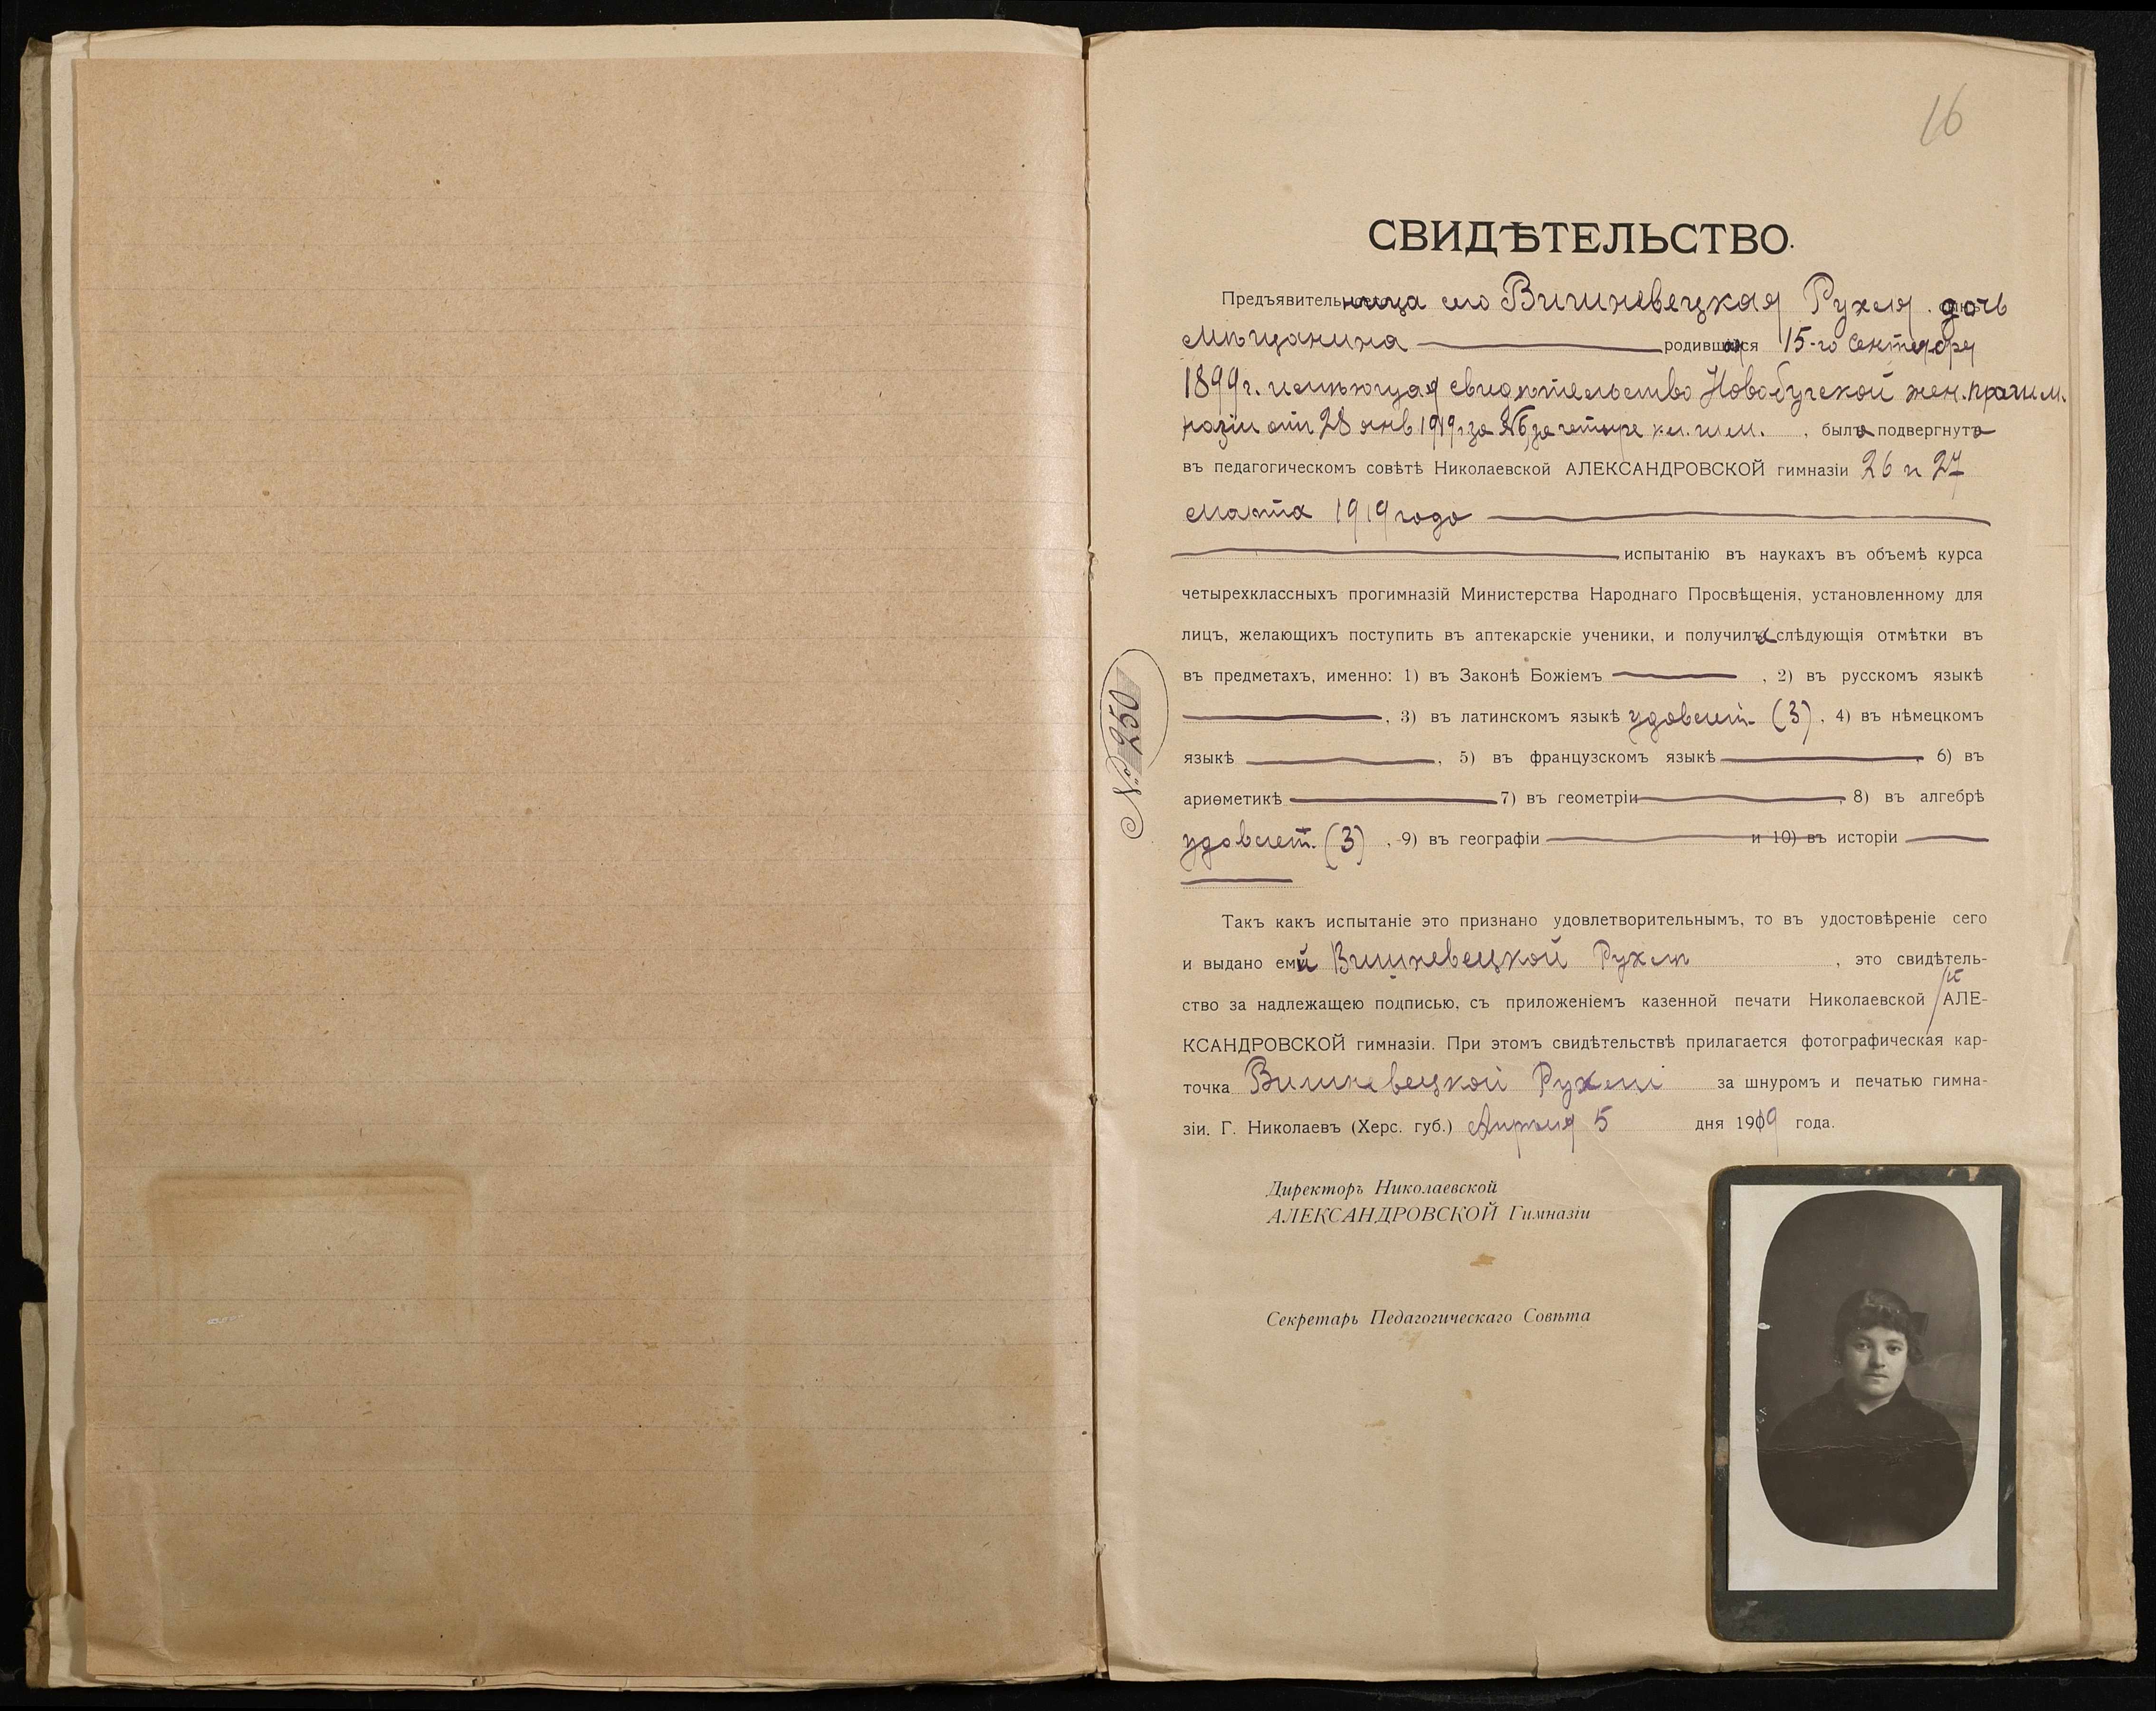 16
СВИДѢТЕЛЬСТВО.
Предъявительница сего Вишневецкая Рухля дочь
мѣщанина родившаяся 15-го Сентября
1899 г. имѣющая свидѣтельство Новобугской жен. прогим.
назіи отъ 28 янв 1919 г. за № за четыре кл. гим. , была подвергнута
въ педагогическомъ совѣтѣ Николаевской АЛЕКСАНДРОВСКОЙ гимназіи 26 и 27
марта 1919 года
испытанію въ наукахъ въ объемѣ курса
четырехклассныхъ прогимназій Министерства Народнаго Просвѣщенія, установленному для
лицъ, желающихъ поступить въ аптекарскіе ученики, и получила слѣдующія отмѣтки въ
въ предметахъ, именно: 1) въ Законѣ Божіемъ , 2) въ русскомъ языкѣ
, 3) въ латинскомъ языкѣ удовлет. (3), 4) въ нѣмецкомъ
языкѣ , 5) въ французскомъ языкѣ , 6) въ
ариѳметикѣ 7) въ геометріи , 8) въ алгебрѣ
удовлет. (3) , 9) въ географіи и 10) въ исторіи
№ 250
Такъ какъ испытаніе это признано удовлетворительнымъ, то въ удостовѣреніе сего
и выдано ей Вишневецкой Рухлѣ , это свидѣтель-
ство за надлежащею подписью, съ приложеніемъ казенной печати Николаевской АЛЕ-
КСАНДРОВСКОЙ гимназіи. При этомъ свидѣтельствѣ прилагается фотографическая кар-
точка Вишневецкой Рухли за шнуромъ и печатью гимна-
зіи. Г. Николаевъ (Херс. губ.) Апрѣля 5 дня 1919 года.
Директоръ Николаевской
АЛЕКСАНДРОВСКОЙ Гимназіи
Секретарь Педагогическаго Совѣта